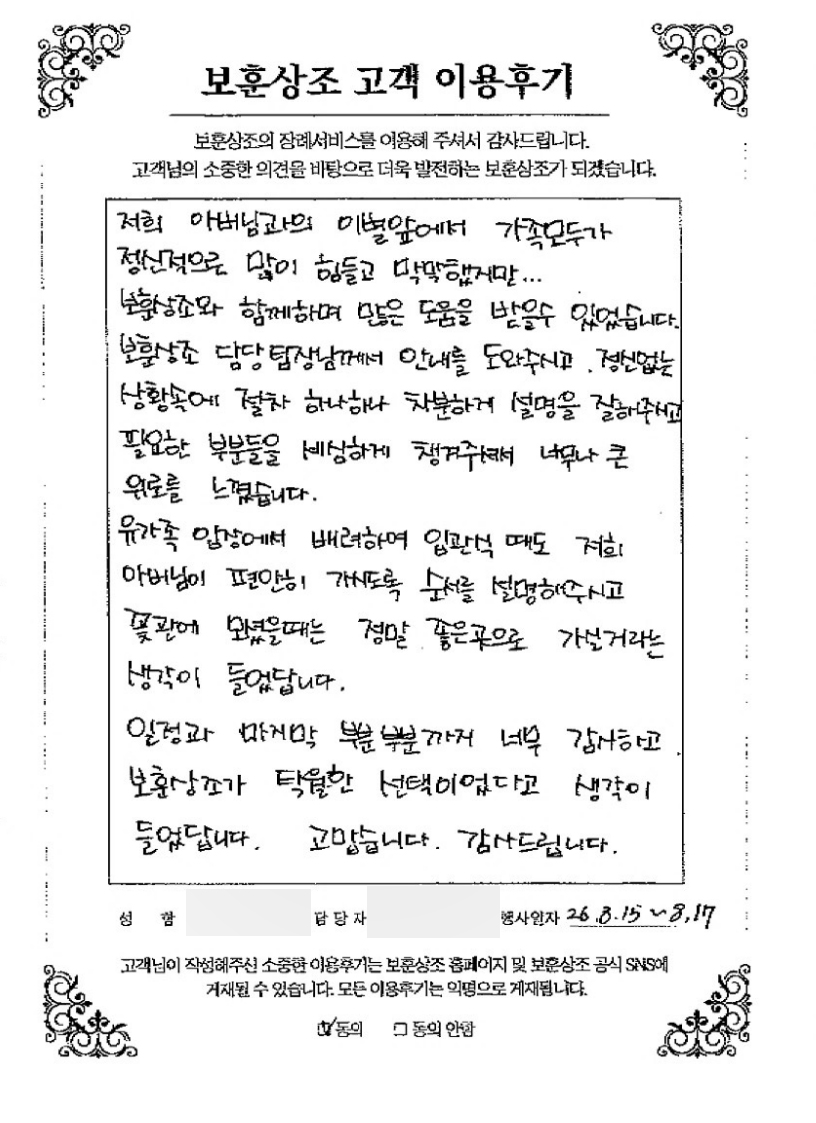 보훈상조 고객 이용후기
보훈상조의 장례서비스를 이용해 주셔서 감사드립니다.
고객님의 소중한 의견을 바탕으로 더욱 발전하는 보훈상조가 되겠습니다.
저희 아버님과의 이별앞에서 가족모두가
정신적으로 많이 힘들고 막막했지만...
보훈상조와 함께하며 많은 도움을 받을수 있었습니다.
보훈상조 담당팀장님께서 안내를 도와주시고. 정신없는
상황속에 절차 하나하나 차분하게 설명을 잘해주시고
필요한 부분들을 세심하게 챙겨주셔서 너무나 큰
위로를 느꼈습니다.
유가족 입장에서 배려하며 입관식 때도 저희
아버님이 편안히 가시도록 순서를 설명해주시고
꽃관에 모셨을때는 정말 좋은곳으로 가실거라는
생각이 들었답니다.
일정과 마지막 부분부분까지 너무 감사하고.
보훈상조가 탁월한 선택이었다고 생각이
들었답니다. 고맙습니다. 감사드립니다.
성 함 담당자 행사일자 26.8.15~8.17
고객님이 작성해주신 소중한 이용후기는 보훈상조 홈페이지 및 보훈상조 공식 SNS에
게재될 수 있습니다. 모든 이용후기는 익명으로 게재됩니다.
동의 동의 안함